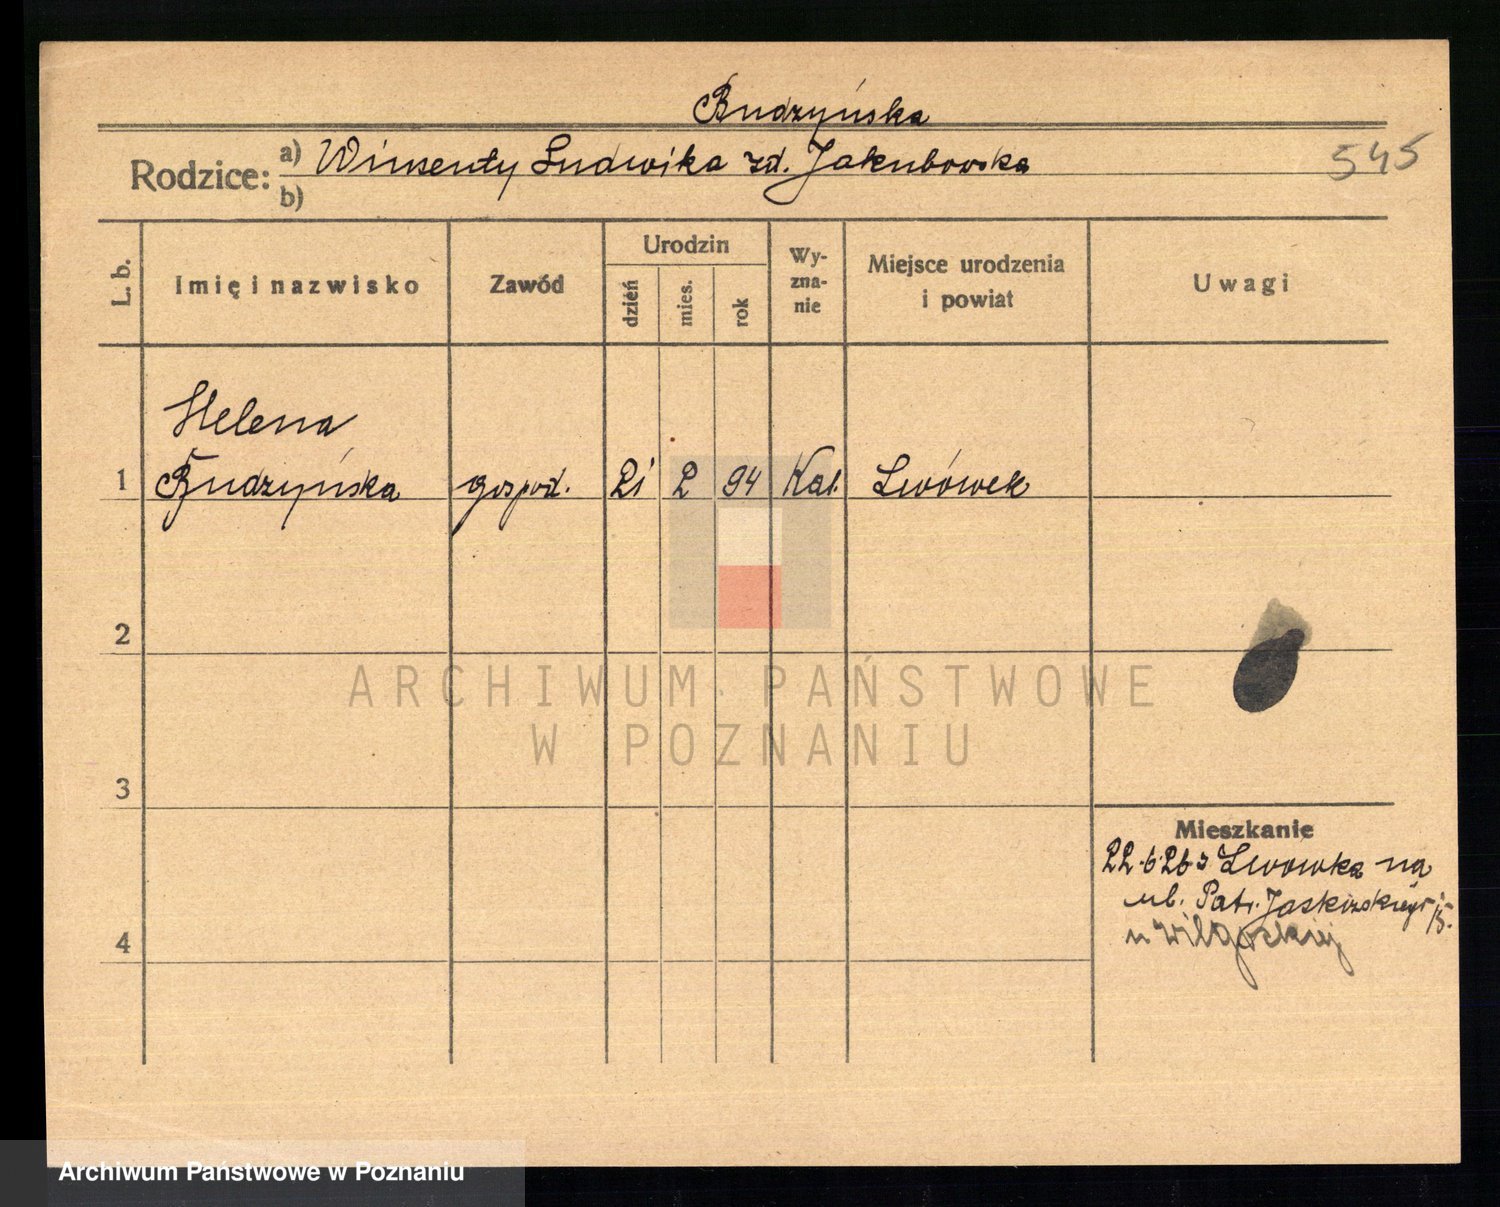 Budzyńska
Rodzice: a) Wincenty Ludwika zd. Jakubowska
b)
545
L. b.
Imię i nazwisko
Zawód
Urodzin
dzień
mies.
rok
Wy-
zna-
nie
Miejsce urodzenia
i powiat
Uwagi
Helena
1 Budzyńska gospod. 21 2 94 Kat. Lwówek
2
ARCHIWUM PAŃSTWOWE
W POZNANIU
3
Mieszkanie
22.6.26 z Lwówka na
ul. Patr. 15.
4
u
Archiwum Państwowe w Poznaniu